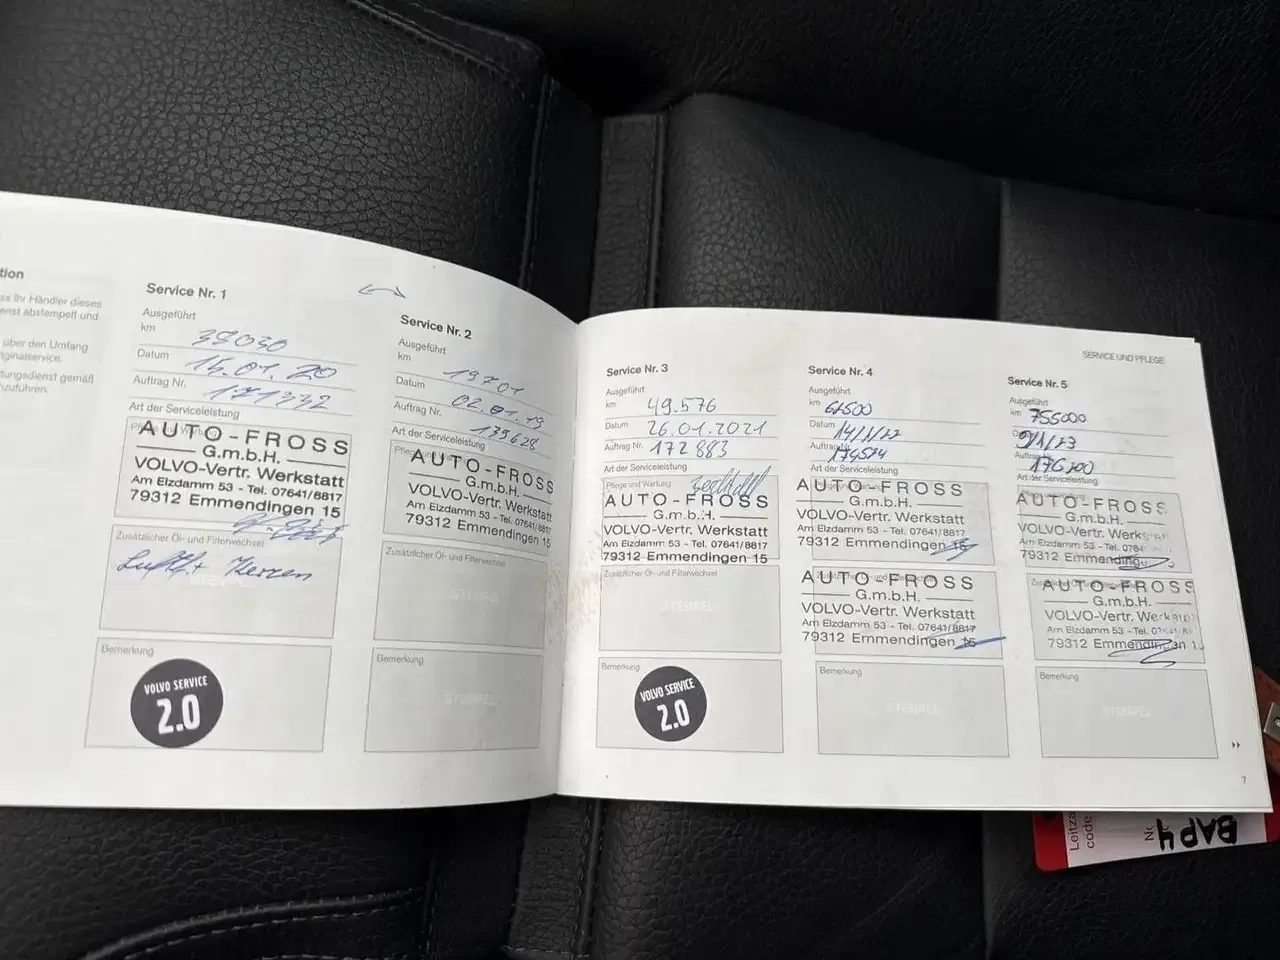 tion
ss Ihr Händler dieses
enst abstempelt und
über den Umfang
ginalservice.
tungsdienst gemäß
zuführen.
Service Nr. 1
Ausgeführt
km 39030
Datum 15.01.20
Auftrag Nr. 171332
Art der Serviceleistung
AUTO-FROSS
G.m.b.H.
VOLVO-Vertr. Werkstatt
Am Elzdamm 53 - Tel. 07641/8817
79312 Emmendingen 15
Zusätzlicher Öl- und Filterwechsel
Luftf. + Kerzen
Bemerkung
VOLVO SERVICE
2.0
Service Nr. 2
Ausgeführt
km 19701
Datum 02.01.19
Auftrag Nr. 139628
Art der Serviceleistung
Pflege und Wartung
AUTO-FROSS
G.m.b.H.
VOLVO-Vertr. Werkstatt
Am Elzdamm 53 - Tel. 07641/8817
79312 Emmendingen 15
Zusätzlicher Öl- und Filterwechsel
STEMPEL
Bemerkung
STEMPEL
SERVICE UND PFLEGE
Service Nr. 3
Ausgeführt
km 49.576
Datum 26.01.2021
Auftrag Nr. 172883
Art der Serviceleistung
Pflege und Wartung
AUTO-FROSS
G.m.b.H.
VOLVO-Vertr. Werkstatt
Am Elzdamm 53 - Tel. 07641/8817
79312 Emmendingen 15
Zusätzlicher Öl- und Filterwechsel
STEMPEL
Bemerkung
VOLVO SERVICE
2.0
Service Nr. 4
Ausgeführt
km
Datum 14/1/22
Auftrag Nr.
Art der Serviceleistung
AUTO-FROSS
G.m.b.H.
VOLVO-Vertr. Werkstatt
Am Elzdamm 53 - Tel. 07641/8817
79312 Emmendingen 15
AUTO-FROSS
G.m.b.H.
VOLVO-Vertr. Werkstatt
Am Elzdamm 53 - Tel. 07641/8817
79312 Emmendingen 15
Bemerkung
STEMPEL
Service Nr. 5
Ausgeführt
km 755000
9/1/23
176200
Art der Serviceleistung
AUTO-FROSS
G.m.b.H.
VOLVO-Vertr. Werk
Am Elzdamm 53 - Tel. 0764
79312 Emmending
AUTO-FROSS
G.m.b.H.
VOLVO-Vertr. Werk
Am Elzdamm 53 - Tel. 07641/8
79312 Emmendingen 1
Bemerkung
STEMPEL
7
Leitza
code
BAP4